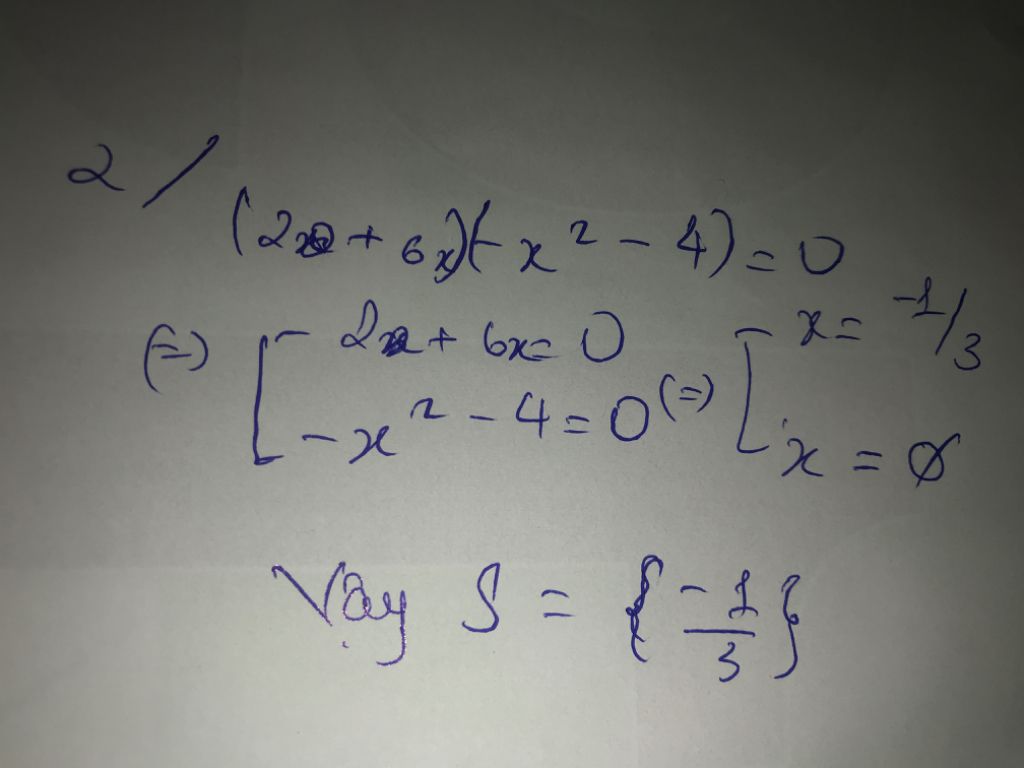 2/
(2 + 6x)(-x² - 4) = 0
(=) [ 2 + 6x = 0 (=) [ x = -1/3
-x² - 4 = 0 x = ∅
Vậy S = {-1/3}